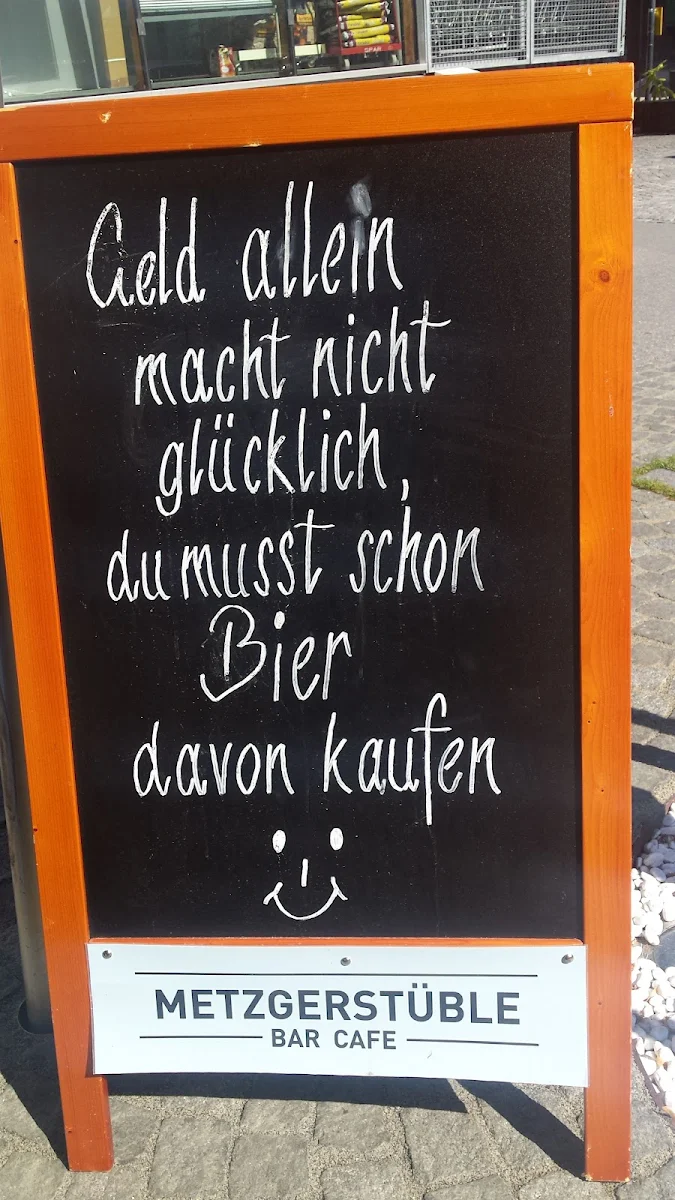 SPAR
Geld allein
macht nicht
glücklich,
du musst schon
Bier
davon kaufen
METZGERSTÜBLE
BAR CAFE